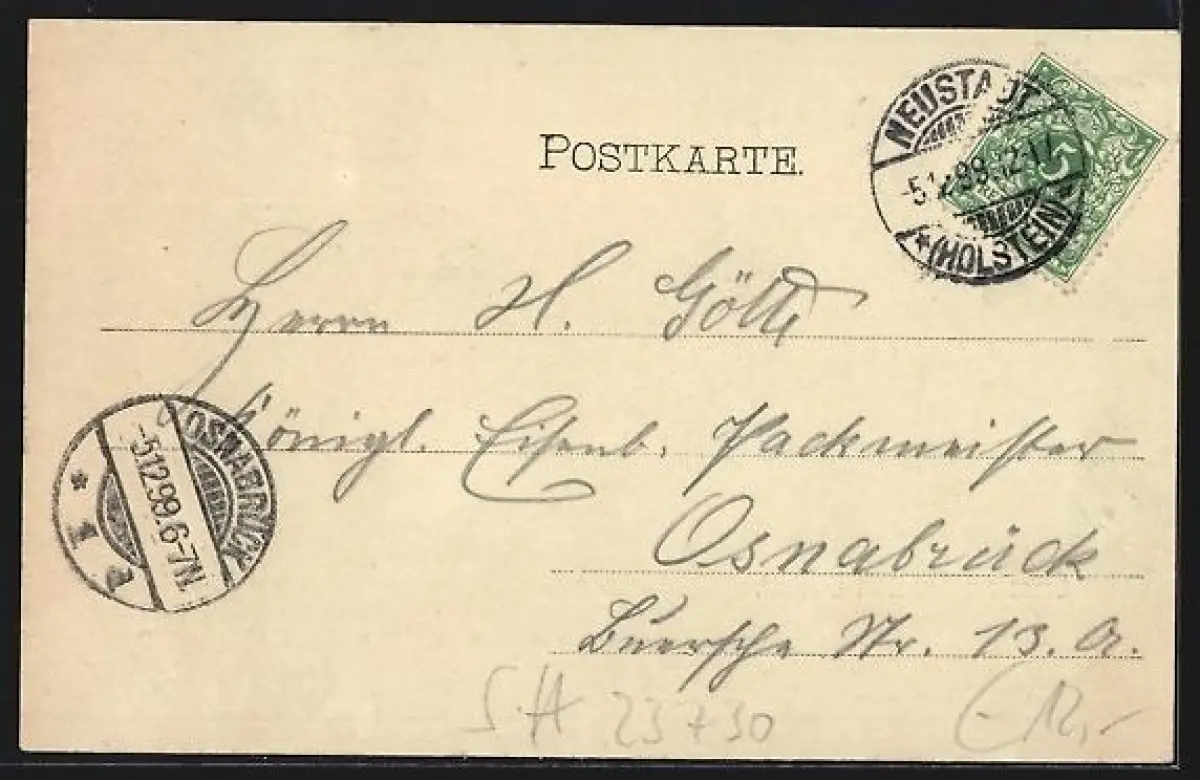 POSTKARTE.
NEUSTADT
-5.12.99.12-1
*(HOLSTEIN)*
5
Herrn H. Götte
Königl. Eisenb. Packmeister
Osnabrück
Buersche Str. 13. a.
OSNABRÜCK
-5.12.99.6-7N.
* 1 a
S-H 23730
12,-